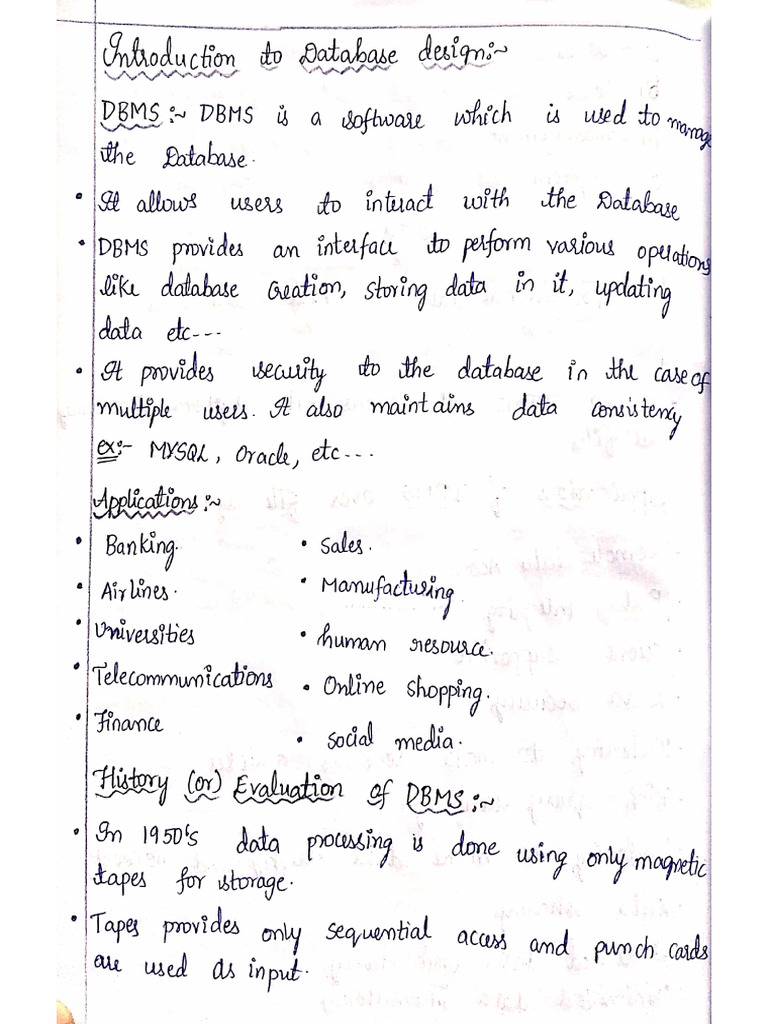 Introduction to Database design:~
DBMS:~ DBMS is a software which is used to manage
the Database.
• It allows users to interact with the Database
• DBMS provides an interface to perform various operations
like database creation, storing data in it, updating
data etc---
• It provides security to the database in the case of
multiple users. It also maintains data consistency
ex:- MYSQL, Oracle, etc---
Applications:~
• Banking. • Sales.
• Airlines. • Manufacturing.
• Universities • human resource.
• Telecommunications • Online shopping.
• Finance • social media.
History (or) Evaluation of DBMS:~
• In 1950's data processing is done using only magnetic
tapes for storage.
• Tapes provides only sequential access and punch cards
are used as input.